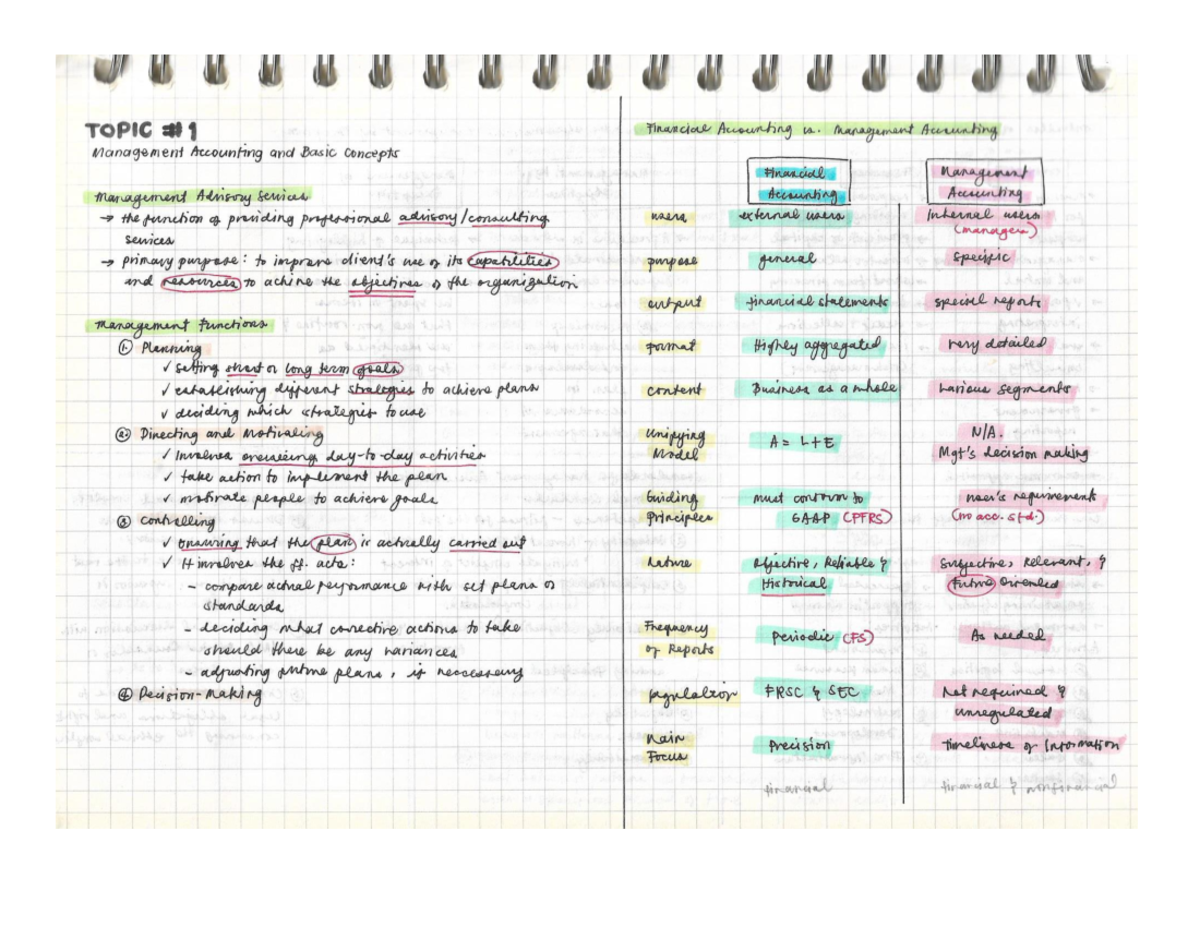 TOPIC #1
Management Accounting and Basic Concepts
Management Advisory Services
→ the function of providing professional advisory/consulting
services
→ primary purpose: to improve client's use of its capabilities
and resources to achieve the objectives of the organization
Management Functions
① Planning
✓ setting short or long term goals
✓ establishing different strategies to achieve plans
✓ deciding which strategies to use
② Directing and Motivating
✓ Involves overseeing day-to-day activities
✓ take action to implement the plan
✓ motivate people to achieve goals
③ Controlling
✓ ensuring that the plan is actually carried out
✓ It involves the ff. acts:
- compare actual performance with set plans or
standards
- deciding what corrective actions to take
should there be any variances
- adjusting future plans, if necessary
④ Decision-making
Financial Accounting vs. Management Accounting
Financial Management
Accounting Accounting
users external users Internal users
(managers)
purpose general specific
output financial statements special reports
format Highly aggregated very detailed
content Business as a whole various segments
Unifying N/A.
Model A = L + E Mgt's decision making
Guiding must conform to user's requirements
Principles GAAP (PFRS) (no acc. std.)
Nature Objective, Reliable & Subjective, Relevant, &
Historical Future Oriented
Frequency
of Reports Periodic (FS) As needed
regulation FRSC & SEC Not required &
unregulated
Main
Focus Precision timeliness of Information
financial financial & nonfinancial